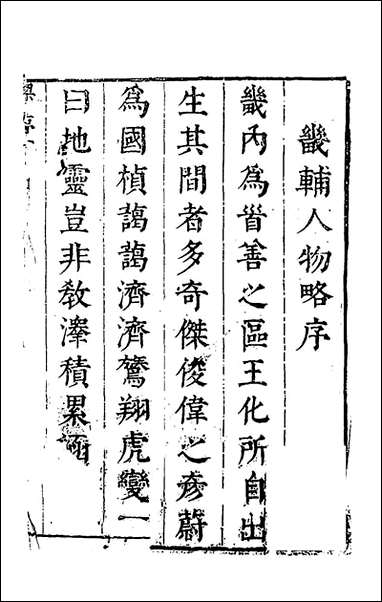 畿輔人物略序
畿內爲首善之區王化所自出
生其間者多奇傑俊偉之彥蔚
爲國楨藹藹濟濟鷟翔虎變一
曰地靈豈非敎澤積累